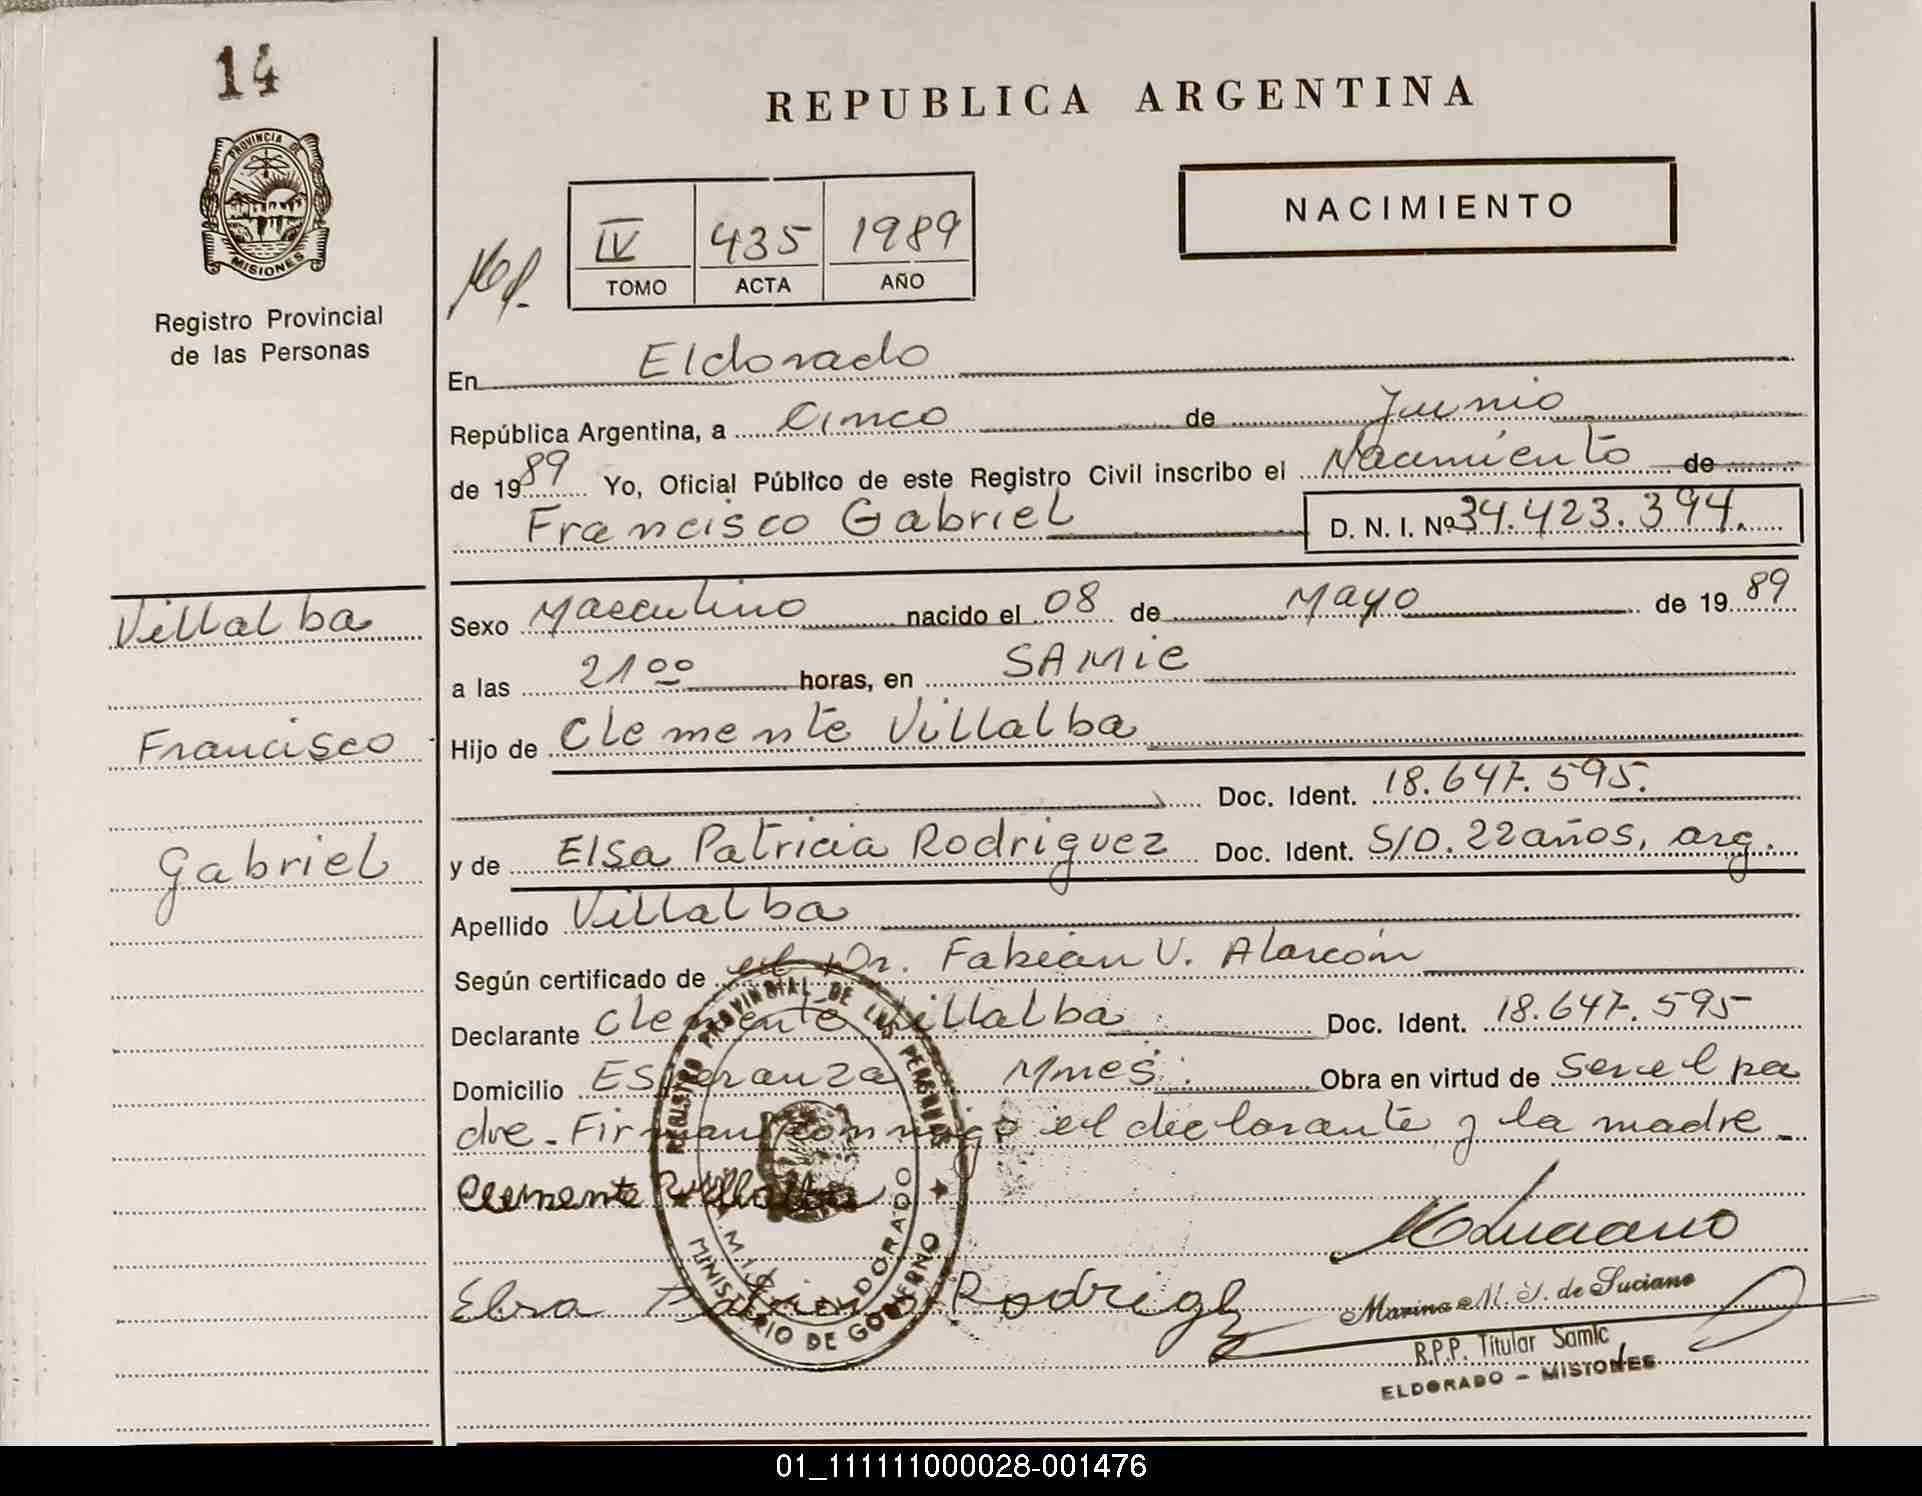 14
PROVINCIA DE
MISIONES
Registro Provincial
de las Personas
REPUBLICA ARGENTINA
NACIMIENTO
IV 435 1989
TOMO ACTA AÑO
En Eldorado
República Argentina, a Cinco de Junio
de 1989 Yo, Oficial Público de este Registro Civil inscribo el Nacimiento de
Francisco Gabriel D. N. I. Nº 34.423.394.
Villalba
Francisco
Gabriel
Sexo Masculino nacido el 08 de Mayo de 1989
a las 21 00 horas, en SAMIC
Hijo de Clemente Villalba
Doc. Ident. 18.647.595.
y de Elsa Patricia Rodriguez Doc. Ident. S/D. 22 años, arg.
Apellido Villalba
Según certificado de el Dr. Fabián V. Alarcón
Declarante Clemente Villalba Doc. Ident. 18.647.595
Domicilio Esperanza Mnes. Obra en virtud de ser el pa
dre - Firman conmigo el declarante y la madre -
Clemente Villalba
Elsa Patricia Rodrigz
REGISTRO PROVINCIAL DE LAS PERSONAS
MINISTERIO DE GOBIERNO
ELDORADO
Marina M. S. de Luciano
R.P.P. Titular Samic
ELDORADO - MISIONES
01_111111000028-001476